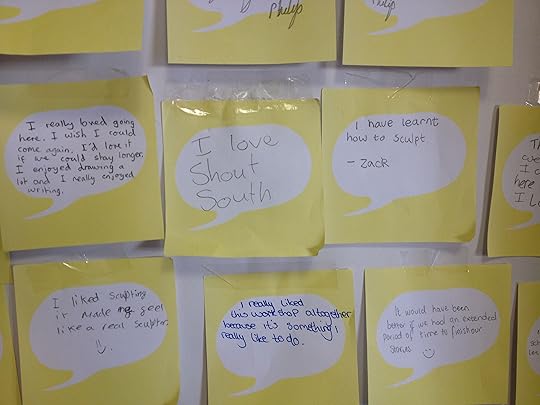 Philip
Philip
I really loved going
here. I wish I could
come again, I'd love it
if we could stay longer.
I enjoyed drawing a
lot and I really enjoyed
writing.
I love
Shout
South
I have learnt
how to sculpt
- Zack
I liked sculpting
it made me feel
like a real sculptor.
I really liked
this workshop altogether
because it's something I
really like to do.
It would have been
better if we had an extended
period of time to finish our
stories